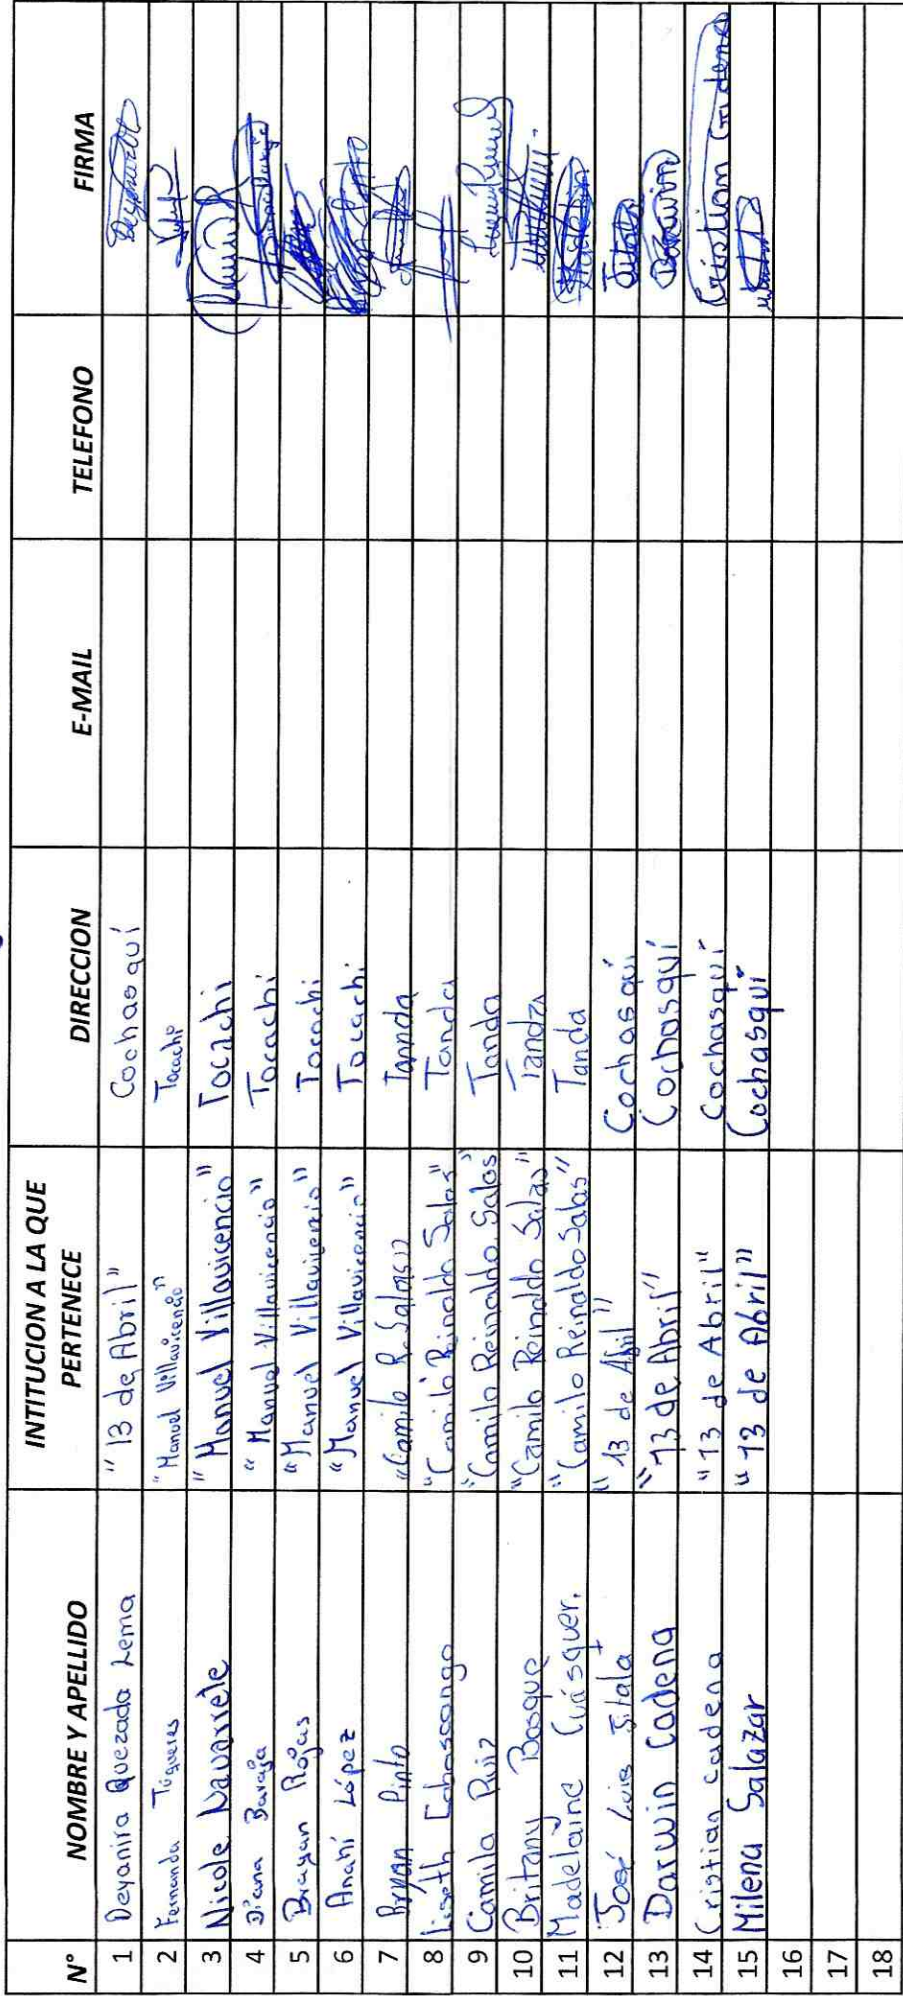 N° NOMBRE Y APELLIDO INTITUCION A LA QUE PERTENECE DIRECCION E-MAIL TELEFONO FIRMA
1 Deyanira Quezada Lema "13 de Abril" Cochasquí
2 Fernanda Túqueres "Manuel Villavicencio" Tocachi
3 Nicole Navarrete "Manuel Villavicencio" Tocachi
4 Diana Baraja "Manuel Villavicencio" Tocachi
5 Brayan Rojas "Manuel Villavicencio" Tocachi
6 Anahí López "Manuel Villavicencio" Tocachi
7 Bryan Pinto "Camilo R. Salas" Tanda
8 Lisseth Cabascango "Camilo Reinaldo Salas" Tanda
9 Camila Ruiz "Camilo Reinaldo Salas" Tanda
10 Britany Bosque "Camilo Reinaldo Salas" Tanda
11 Madelaine Cuásquer. "Camilo Reinaldo Salas" Tanda
12 José Luis "13 de Abril" Cochasquí
13 Darwin Cadena "13 de Abril" Cochasquí Darwin
14 Cristian Cadena "13 de Abril" Cochasquí Cristian Cadena
15 Milena Salazar "13 de Abril" Cochasquí
16
17
18